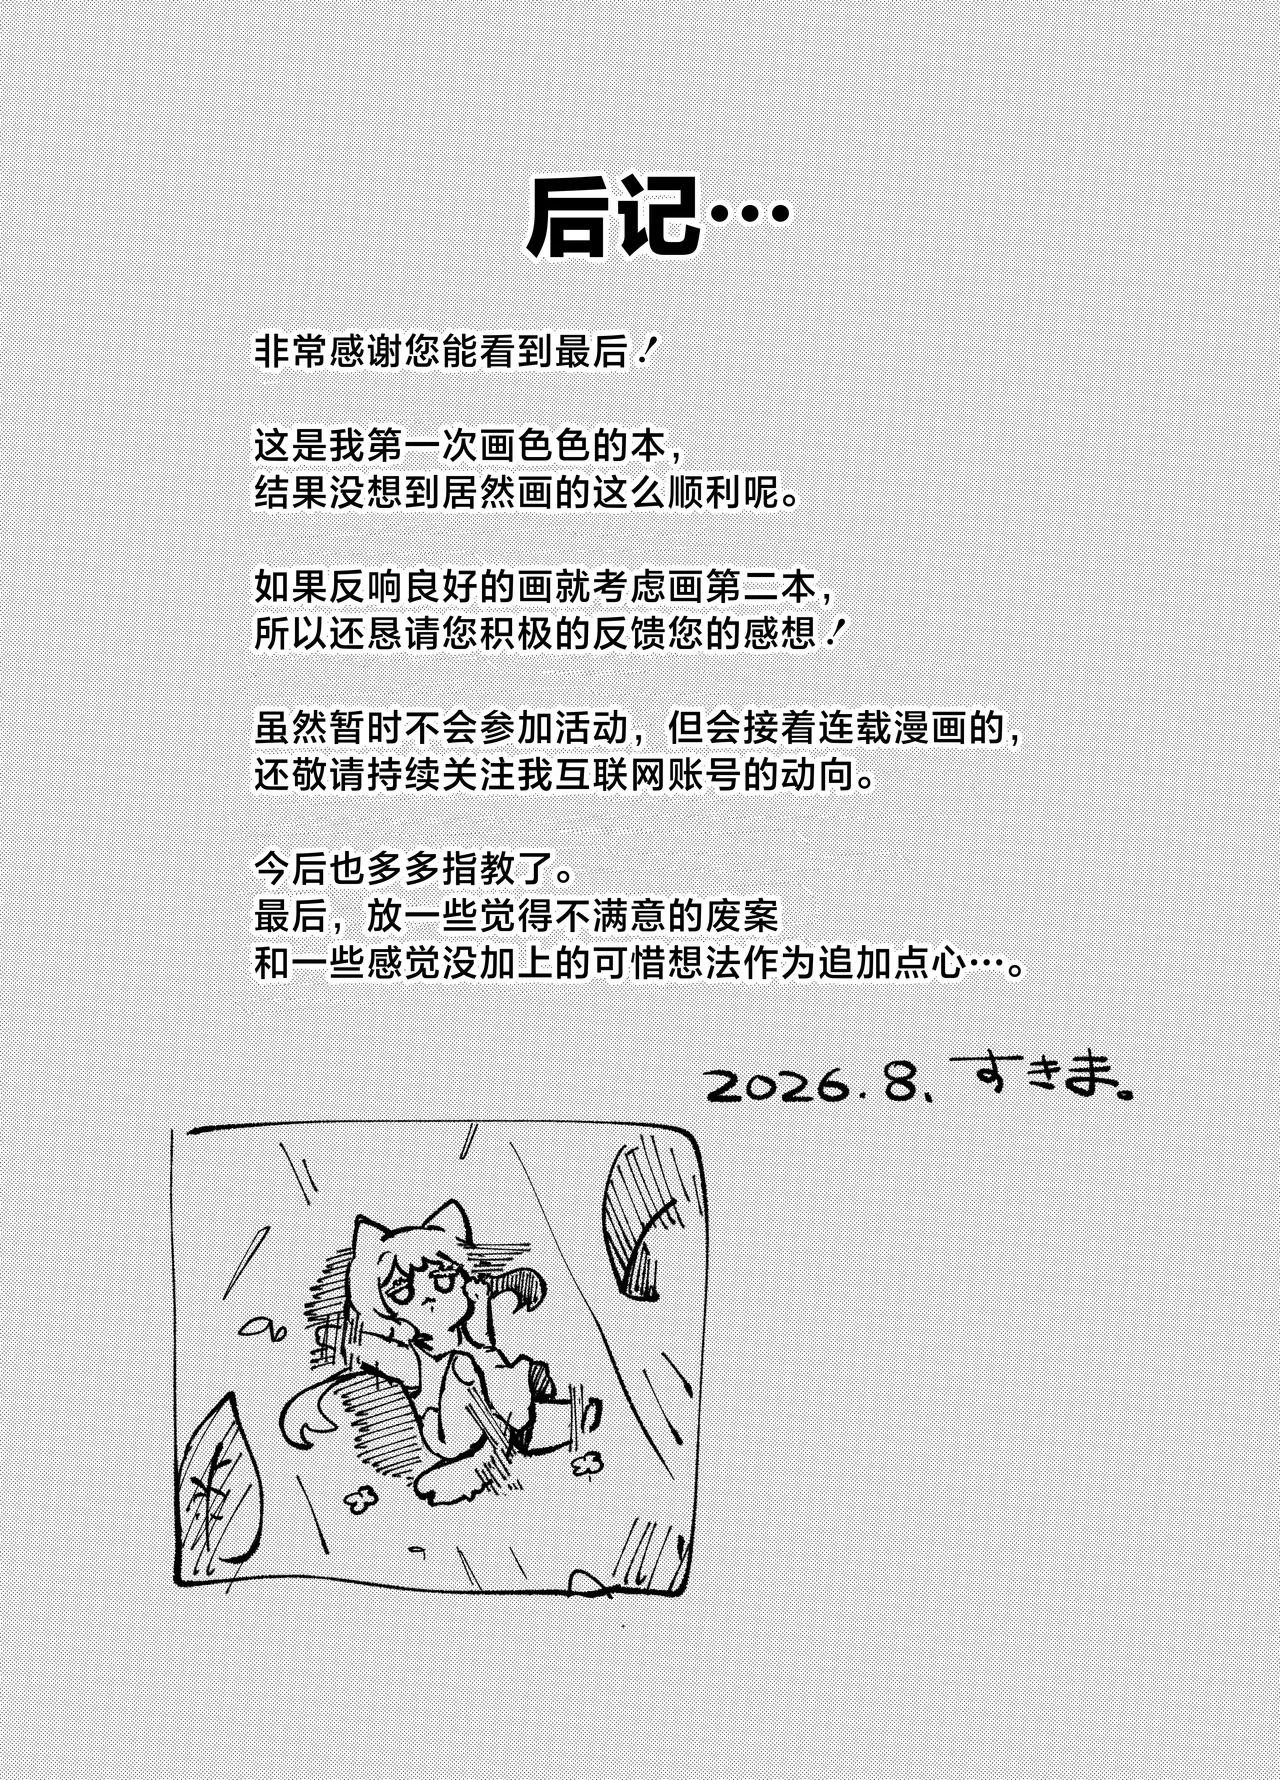 后记…
非常感谢您能看到最后！
这是我第一次画色色的本，
结果没想到居然画的这么顺利呢。
如果反响良好的画就考虑画第二本，
所以还恳请您积极的反馈您的感想！
虽然暂时不会参加活动，但会接着连载漫画的，
还敬请持续关注我互联网账号的动向。
今后也多多指教了。
最后，放一些觉得不满意的废案
和一些感觉没加上的可惜想法作为追加点心…。
2026.8、すきま。